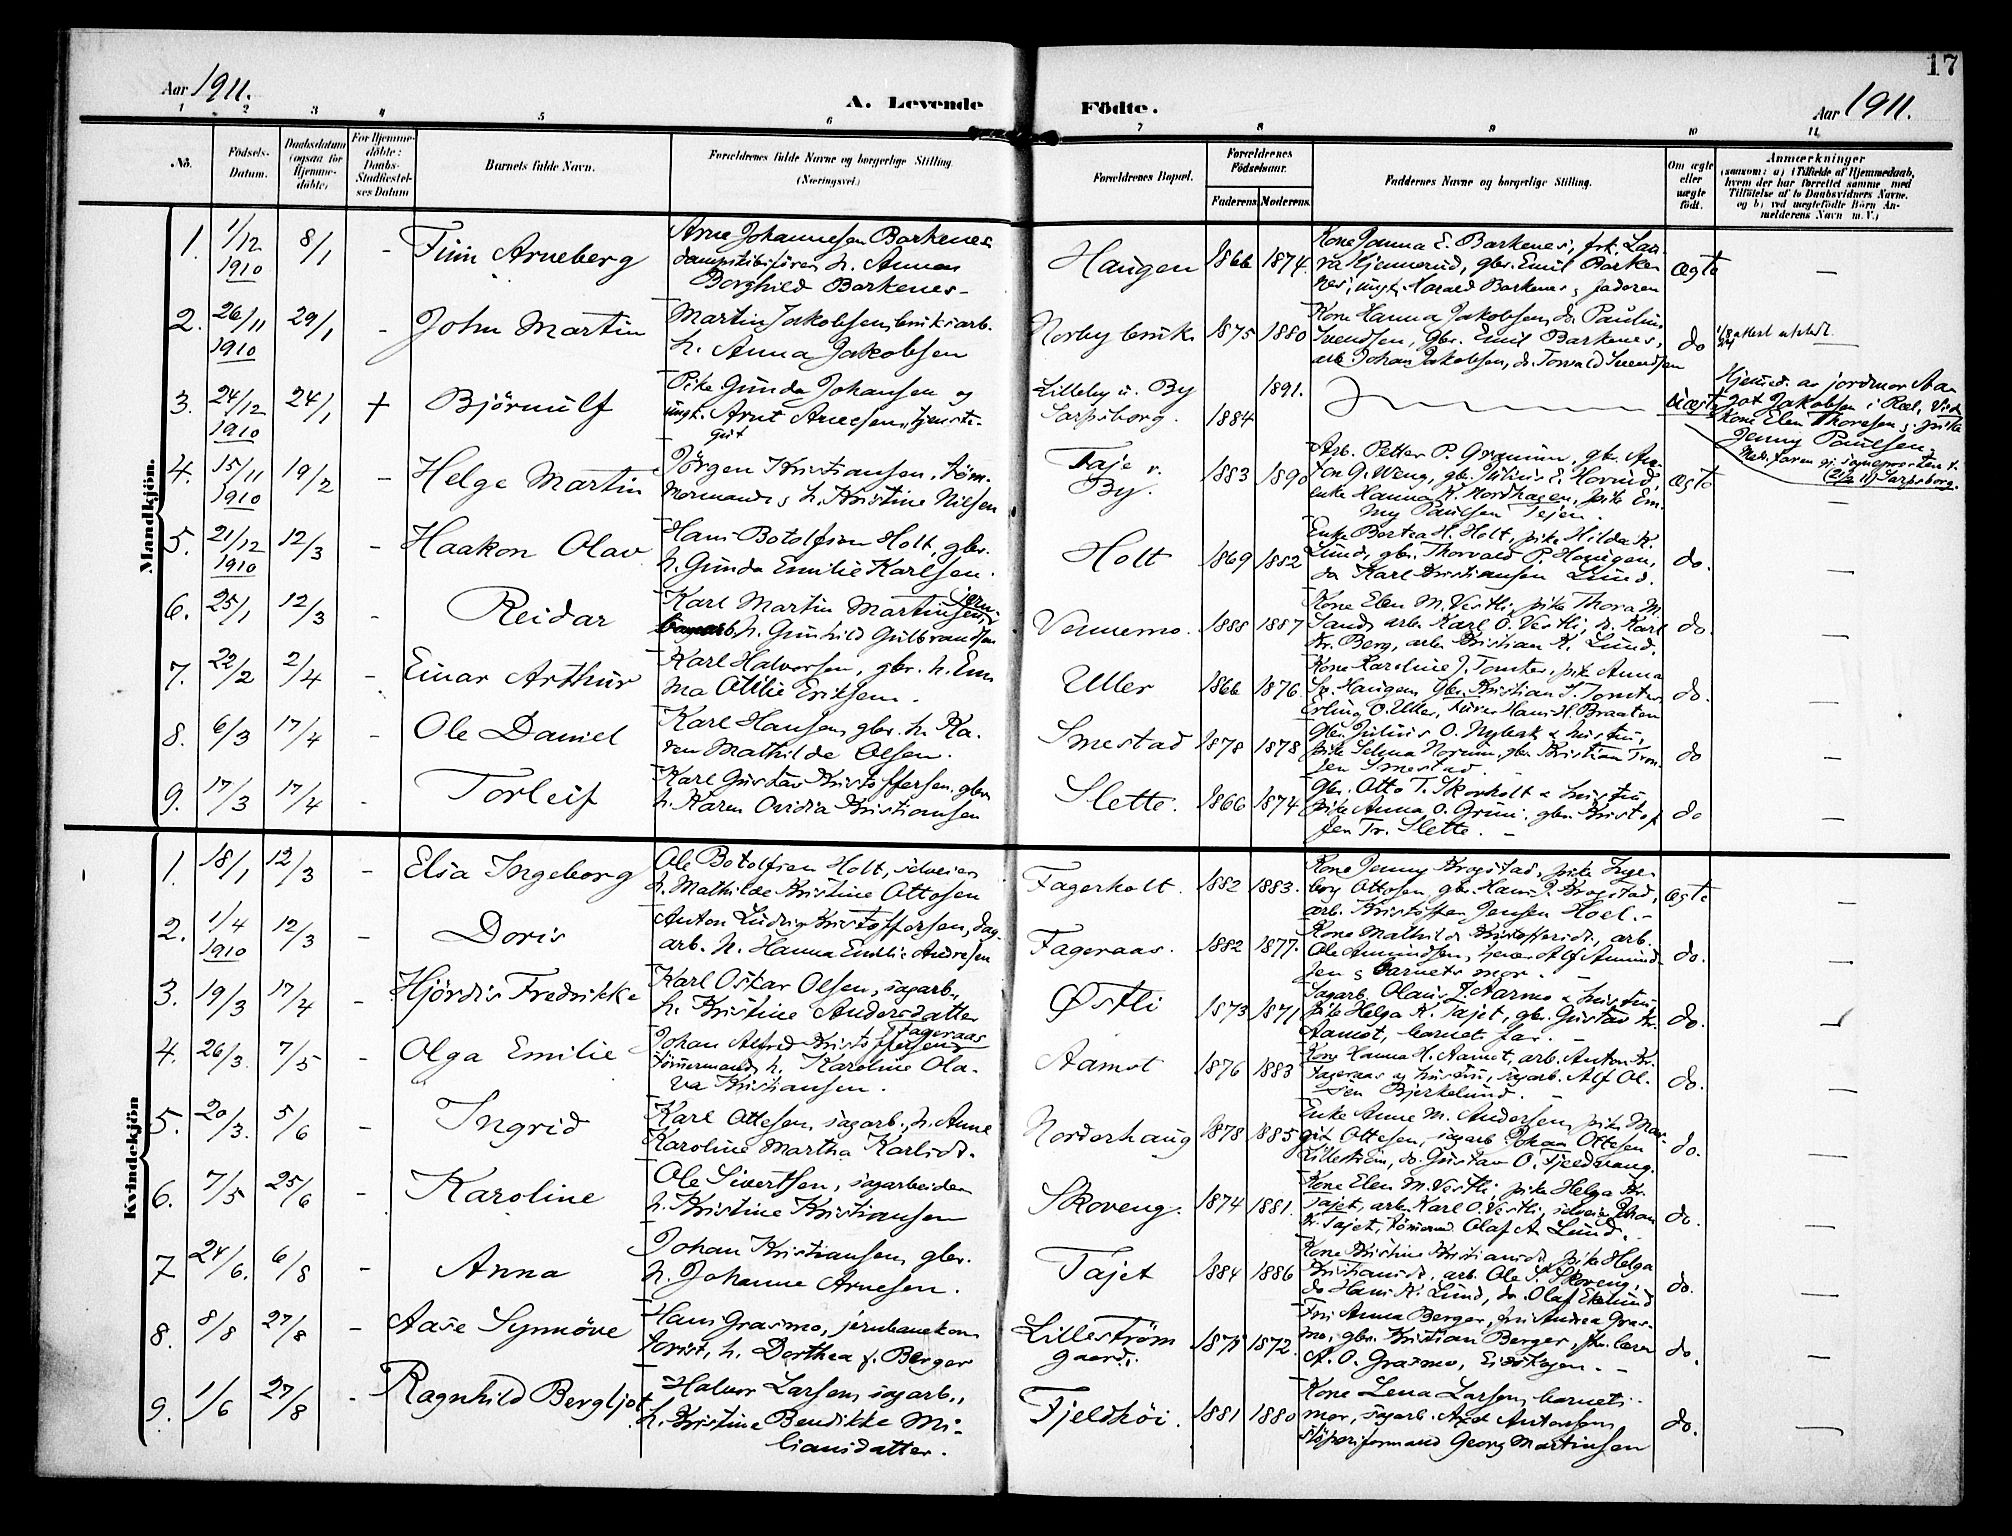 17
Aar 1911.
A. Levende Födte.
Aar 1911.
1 2 3 4 5 6 7 8 9 10 11
No.
Födsels-
Datum.
Daabsdatum
(ogsaa for
Hjemme-
döbte)
For Hjemme-
döbte:
Daabs-
Stadfæstel-
ses Datum
Barnets fulde Navn.
Forældrenes fulde Navne og borgerlige Stilling.
(Næringsvei.)
Forældrenes Bopæl.
Forældrenes
Födselsaar.
Faderens Moderens
Faddernes Navne og borgerlige Stilling.
Om ægte
eller
uægte
födt.
Anmærkninger
(saasom: a) i Tilfælde af Hjemmedaab,
hvem der har forrettet samme, med
Tilföielse af to Daabsvidners Navne,
og b) ved uægtefödte Börn An-
melderens Navn m. V.)
Mandkjön.
1. 1/12 1910 8/1 - Finn Arneberg
Arne Johannesen Barkenes
dampskibsförer h. Anna
Borghild Barkenes-
Haugen 1866 1874.
Kone Janna E. Barkenes, frk. Lau-
ra Hjennerud, gbr. Emil Barke-
nes, ungk. Harald Barkenes, faderen
ægte —
2. 26/11 1910 29/1 - John Martin
Martin Jakobsen, bruksarb.
h. Anna Jakobsen
Norby bruk 1875 1880
Kone Hanna Jakobsen, do. Pauline
Svendsen, gbr. Emil Barkenes,
arb. Johan Jakobsen, do. Torvald Svendsen
do attest utstedt.
3. 24/12 1910 24/1 + Björnulf
Pike Gunda Johansen og
ungk. Arnt Arnesen, tjeneste-
gut
Lilleby u. By
Sarpsborg. 1884 1891.
uægte
Hjemmed. av jordmor Aa-
got Jakobsen i Roel, Vidn.
Kone Elen Thoresen, pike
Jenny Paulsen.
Sarpsborg.
4. 15/11 1910 19/2 - Helge Martin
Jörgen Kristiansen, töm-
mermand, h. Kristine Nilsen
Taje v.
By. 1883 1890
Arb. Petter P. Granum, gbr. An-
ton G. Weng, gb. Julius E. Horind,
enke Hanna K. Nordhagen, pike Em-
my Paulsen Tejen
ægte —
5. 21/12 1910 12/3 - Haakon Olav
Hans Botolfsen Holt, gbr.
h. Gunda Emilie Karlsen.
Holt 1869 1882
Enke Bertea H. Holt, pike Hilda K.
Lund, gbr. Thorvald P. Haugen,
do Karl Kristiansen Lund.
do. —
6. 25/1 12/3 - Reidar
Karl Martin Martinsen, jern-
banearb. h. Gunhild Gulbrandsen
Vennemo. 1888 1887
Kone Elen M. Vestli, pike Thora M.
Sand, arb. Karl O. Vestli, do. Karl
Kr. Berg, arb. Kristian K. Lund.
do. —
7. 22/2 2/4 - Einar Arthur
Karl Halvorsen, gbr. h. Em-
ma Otilie Eriksen.
Uller 1866 1876.
Kone Karoline J. Tomter, pike Anna
Sr. Haugen, gbr. Kristian S. Tomter,
Erling O. Uller, Hans H. Braaten
do. —
8. 6/3 17/4 - Ole Daniel
Karl Hansen gbr. h. Ka-
ren Mathilde Olsen.
Smestad 1878 1878
Gbr. Julius O. Nybak & hustru,
pike Selma Norum, gbr. Kristian Tron-
sen Smestad.
do —
9. 17/3 17/4 - Torleif
Karl Gustav Kristoffersen, gbr.
h. Karen Ovidia Kristiansen
Slette. 1866 1874
Gbr. Otto T. Skovholt & hustru
pike Anna O. Grini, gbr. Kristof-
fen Tr. Slette. -
do —
Kvindekjön
1. 18/1 12/3 - Elsa Ingeborg
Ole Botolfsen Holt, selveier
h. Mathilde Kristine Ottosen
Fagerholt. 1882 1883.
Kone Jenny Krogstad, pike Inge-
borg Ottosen, gbr. Hans J. Krogstad,
arb. Kristoffer Jensen Hoel. -
ægte —
2. 1/4 1910 12/3 - Doris
Anton Ludvig Kristoffersen, dag-
arb. h. Hanna Emilie Andresen
Fageraas. 1882 1877.
Kone Mathilde Kristoffersdt., arb.
Ole Amundsen, Alf Amund-
sen & barnets mor. -
do. —
3. 19/3 17/4 - Hjördis Fredrikke
Karl Oskar Olsen, sagarb.
h. Kristine Andersdatter
Østli 1873 1871
Sagarb. Olaus J. Aarmo & hustru
pike Helga K. Tajet, gbr. Gustav Kr.
Aamot, barnets far. -
do. —
4. 26/3 7/5 - Olga Emilie
Johan Alfred Kristoffersen Fageraas
tömmermand, h. Karoline Ola-
va Kristiansen.
Aamot 1876 1883
Kone Hanna H. Aamot, arb. Anton Kr.
Fageraas og hustru, sagarb. Alf Ol-
sen Bjerkelund. -
do. —
5. 20/3. 5/6 - Ingrid
Karl Ottesen, sagarb., h. Anne
Karoline Martha Karlsdt.
Norderhaug 1878 1885
Enke Anne M. Andersen, pike Mar-
git Ottesen, sagarb. Johan Ottesen
Lilleström, do. Gustav O. Fjeldvang.
do. —
6. 7/5 25/6 - Karoline
Ole Sivertsen, sagarbeider
h. Kristine Kristiansen
Skoveng. 1874 1881.
Kone Elen M. Vestli, pike Helga Kr.
Tajet, arb. Karl O. Vestli, selveier Johan
Kr. Tajet, tömmermd. Olaf A. Lund.
do. —
7 24/6. 6/8 - Anna
Johan Kristiansen, gbr.
h. Johanne Arnesen.
Tajet 1884 1886
Kone Kristine Kristiansdt., pike Helga
Kristiansdt., arb. Ole S. Skoveng,
do Hans K. Lund, do. Olaf Eklund
do. —
8. 8/8 27/8 - Aase Synnöve
Hans Grasmo, jernbanekon-
torist, h. Dorthea f. Berger
Lilleström
gaard. 1875 1872.
Fru Anna Berger, fru Andrea Gras-
mo, gbr. Kristian Berger, fhv. lærer
A. O. Grasmo, Eidskogen. -
do. —
9. 1/6 27/8 - Ragnhild Bergljot
Halvor Larsen, sagarb.,
h. Kristine Bendikke Mi-
liansdatter.
Fjeldhöi. 1881 1880
Kone Lena Larsen, barnets
mor, sagarb. Axel Antonsen,
stöperiformand Georg Martinsen
do. —